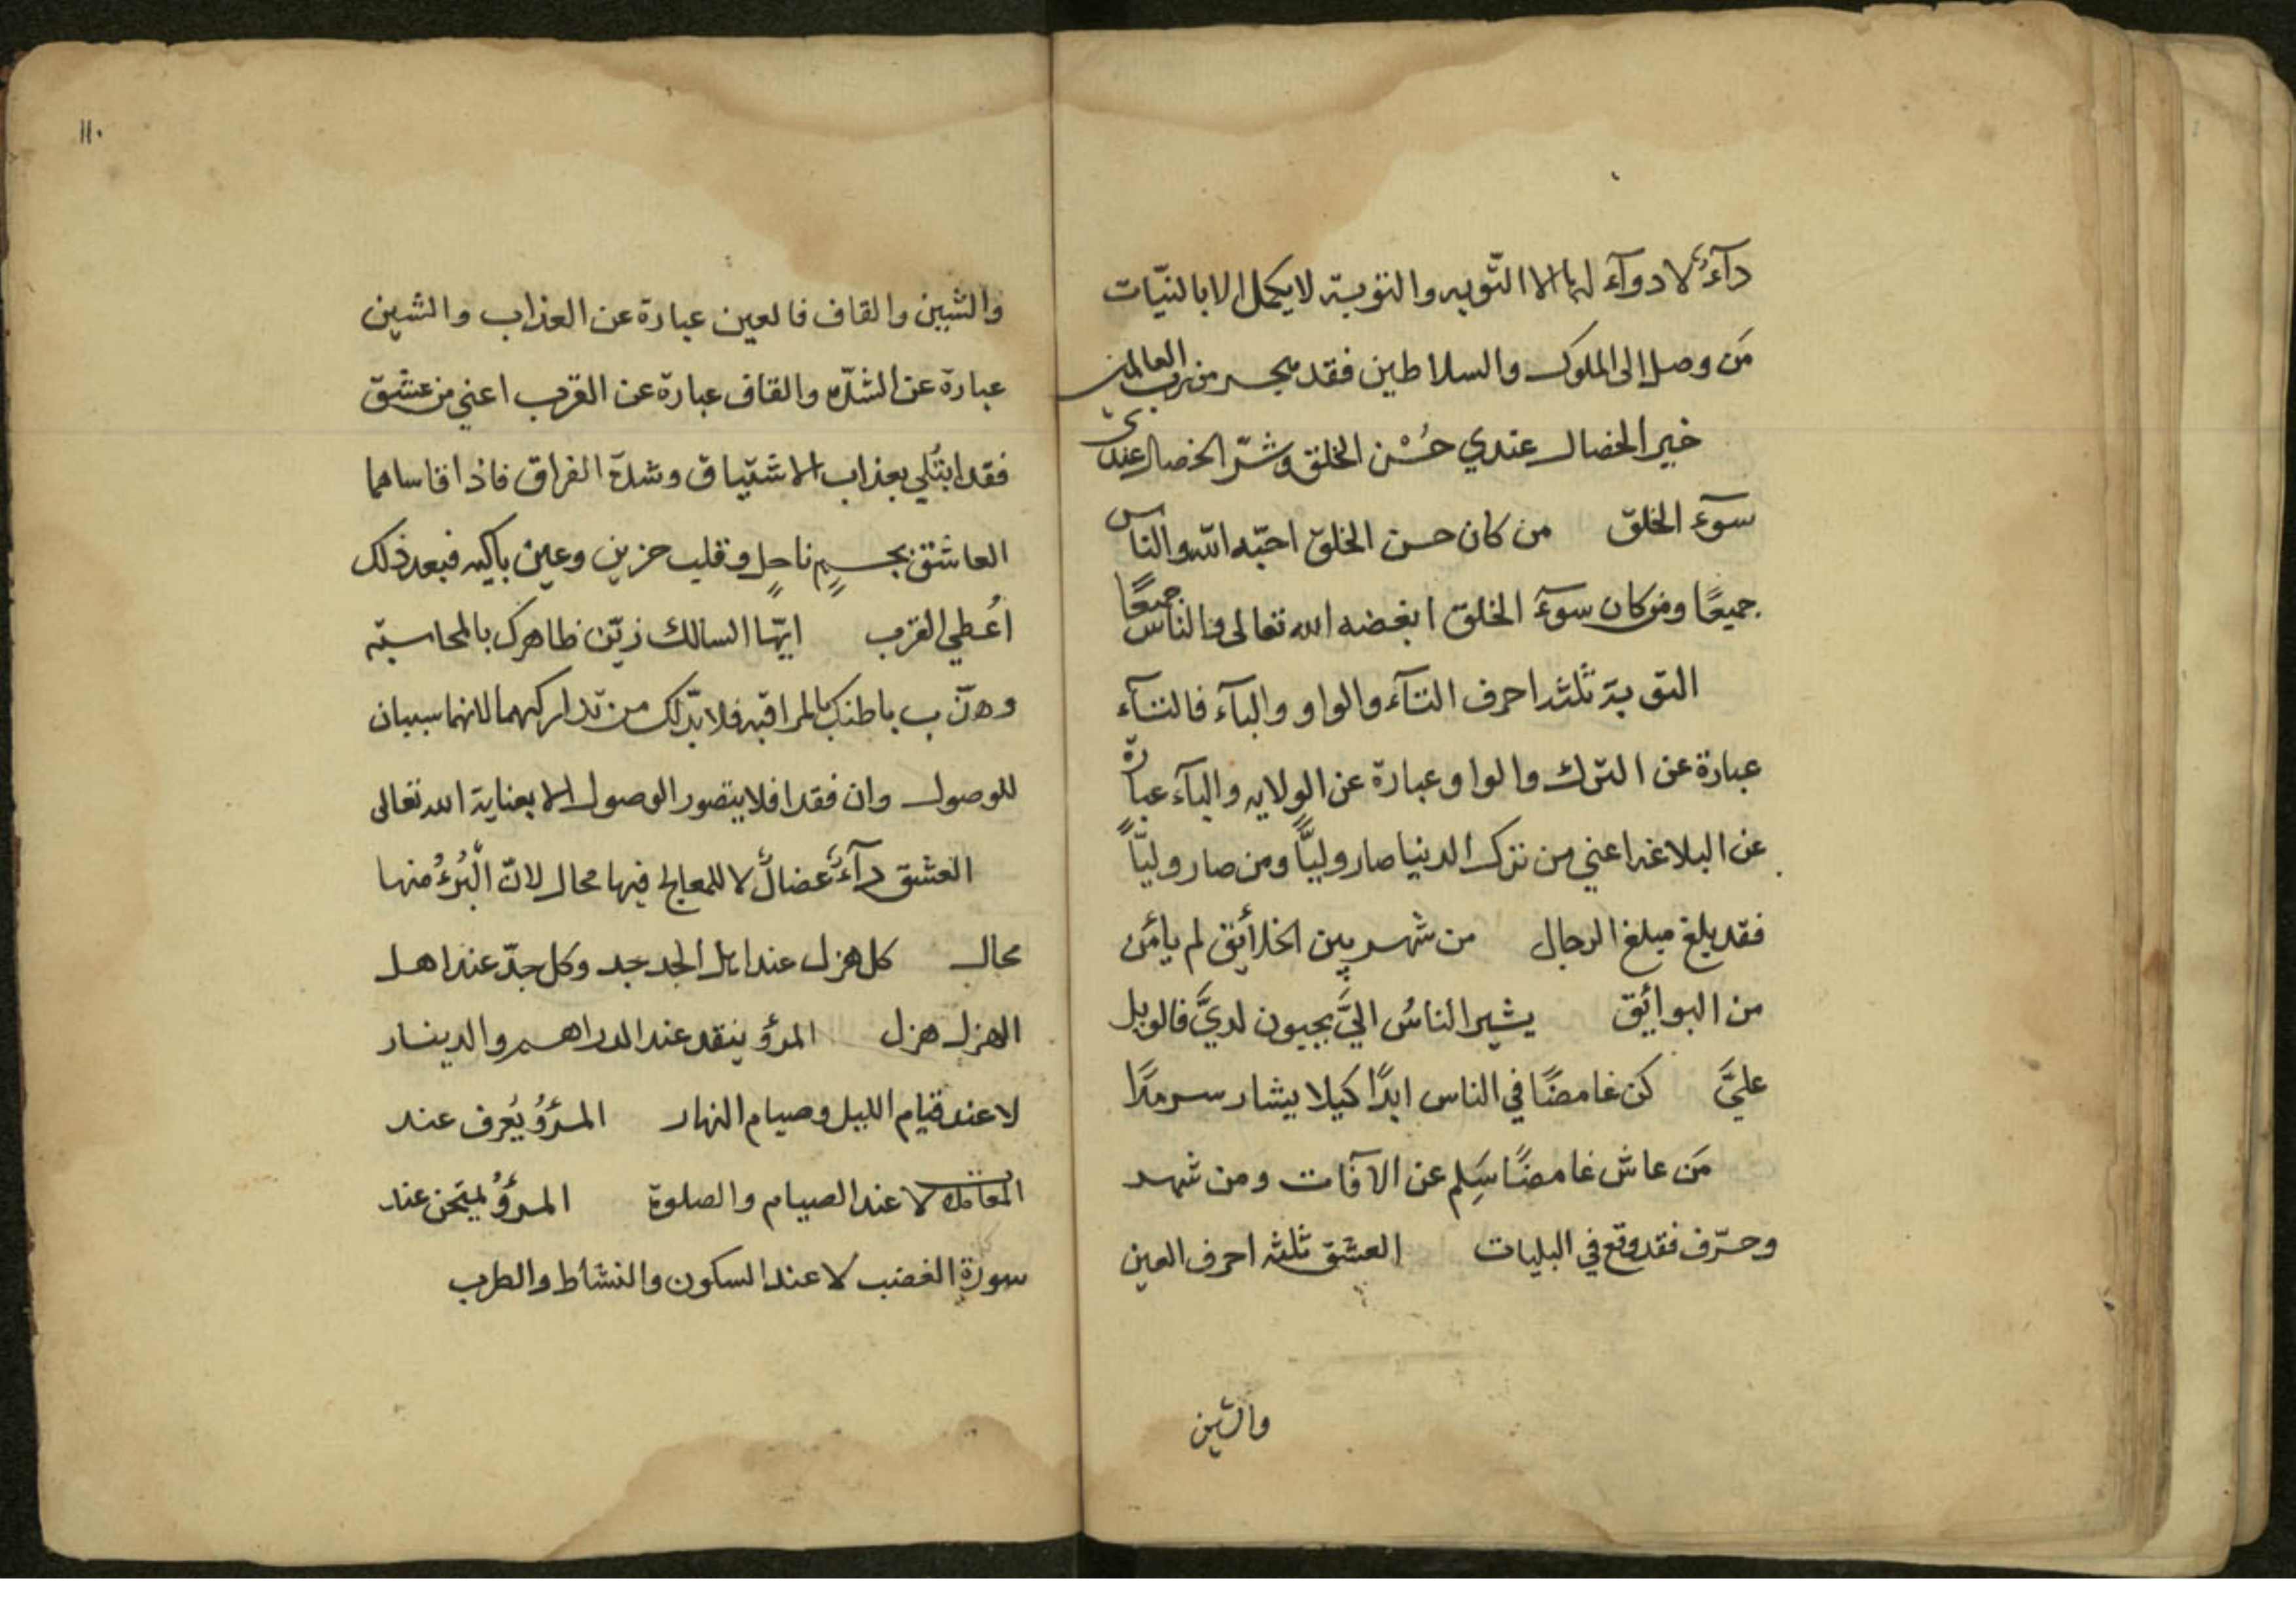 دآءٌ لا دوآء لها الا التّوبه والتوبة لا يكمل الا بالنيّات
مَن وصل الى الملوك والسلاطين فقد من رب العالمين
خير الخصال عندي حُسْن الخلق وشرّ الخصال عندي
سوٓء الخلق من كان حسن الخلق احبّه الله والناس
جميعًا ومن كان سوٓء الخلق ابغضه الله تعالى والناس جميعًا
التوبة ثلثة احرف التآء والواو والبآء فالتآء
عبارة عن الترك والواو عبارة عن الولايه والبآء عبارة
عن البلاغه اعني من ترك الدنيا صار وليًّا ومن صار وليًّا
فقد بلغ مبلغ الرجال من شهر بين الخلائق لم يأمن
من البوائق يشير الناسُ اليَّ يجيون لديَّ فالويل
عليَّ كن غامضًا في الناس ابدًا كيلا يشار سرمدًا
مَن عاش غامضًا سَلِم عن الآفات ومن شهد
وحرّف فقد وقع في البليات العشق ثلثه احرف العين
والشين
١١٠
والشين والقاف فالعين عبارة عن العذاب والشين
عبارة عن الشدّه والقاف عبارة عن القرب اعني من عشق
فقد ابتُلي بعذاب الاشتياق وشدّة الفراق فاذا قاساهما
العاشق بجسمٍ ناحلٍ وقلب حزين وعين باكيه فبعد ذلك
اُعطي القرب ايّها السالك زيّن ظاهرك بالمحاسبة
وهذّب باطنك بالمراقبه فلا بدّ لك من تداركهما لانهما سببان
للوصول وان فقدا فلا يتصور الوصول الا بعناية الله تعالى
العشق دآءٌ عضالٌ لا للمعالج فيها مجال لانّ الْبُرءُ منها
محال كل هزل عند اهل الجد جد وكل جدّ عند اهل
الهزل هزل المرؤ ينقد عند الدراهم والدينار
لا عند قيام الليل وصيام النهار المرؤُ يُعرف عند
المعامله لا عند الصيام والصلوة المرؤُ يمتحن عند
سورة الغضب لا عند السكون والنشاط والطرب